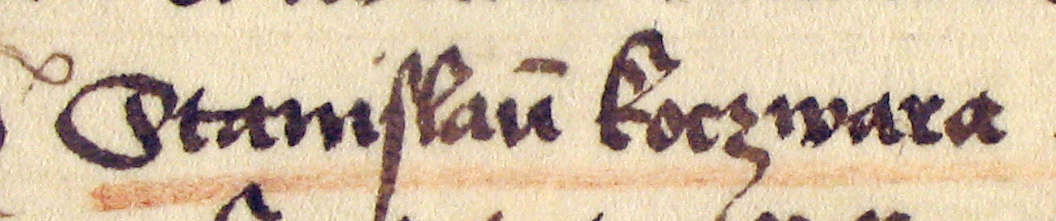 Stanislaū koczwara